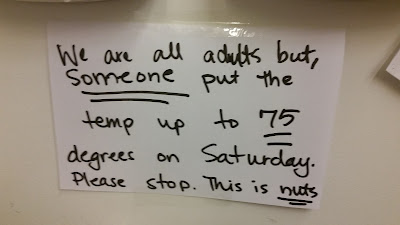 We are all adults but,
Someone put the
temp up to 75
degrees on Saturday.
Please stop. This is nuts